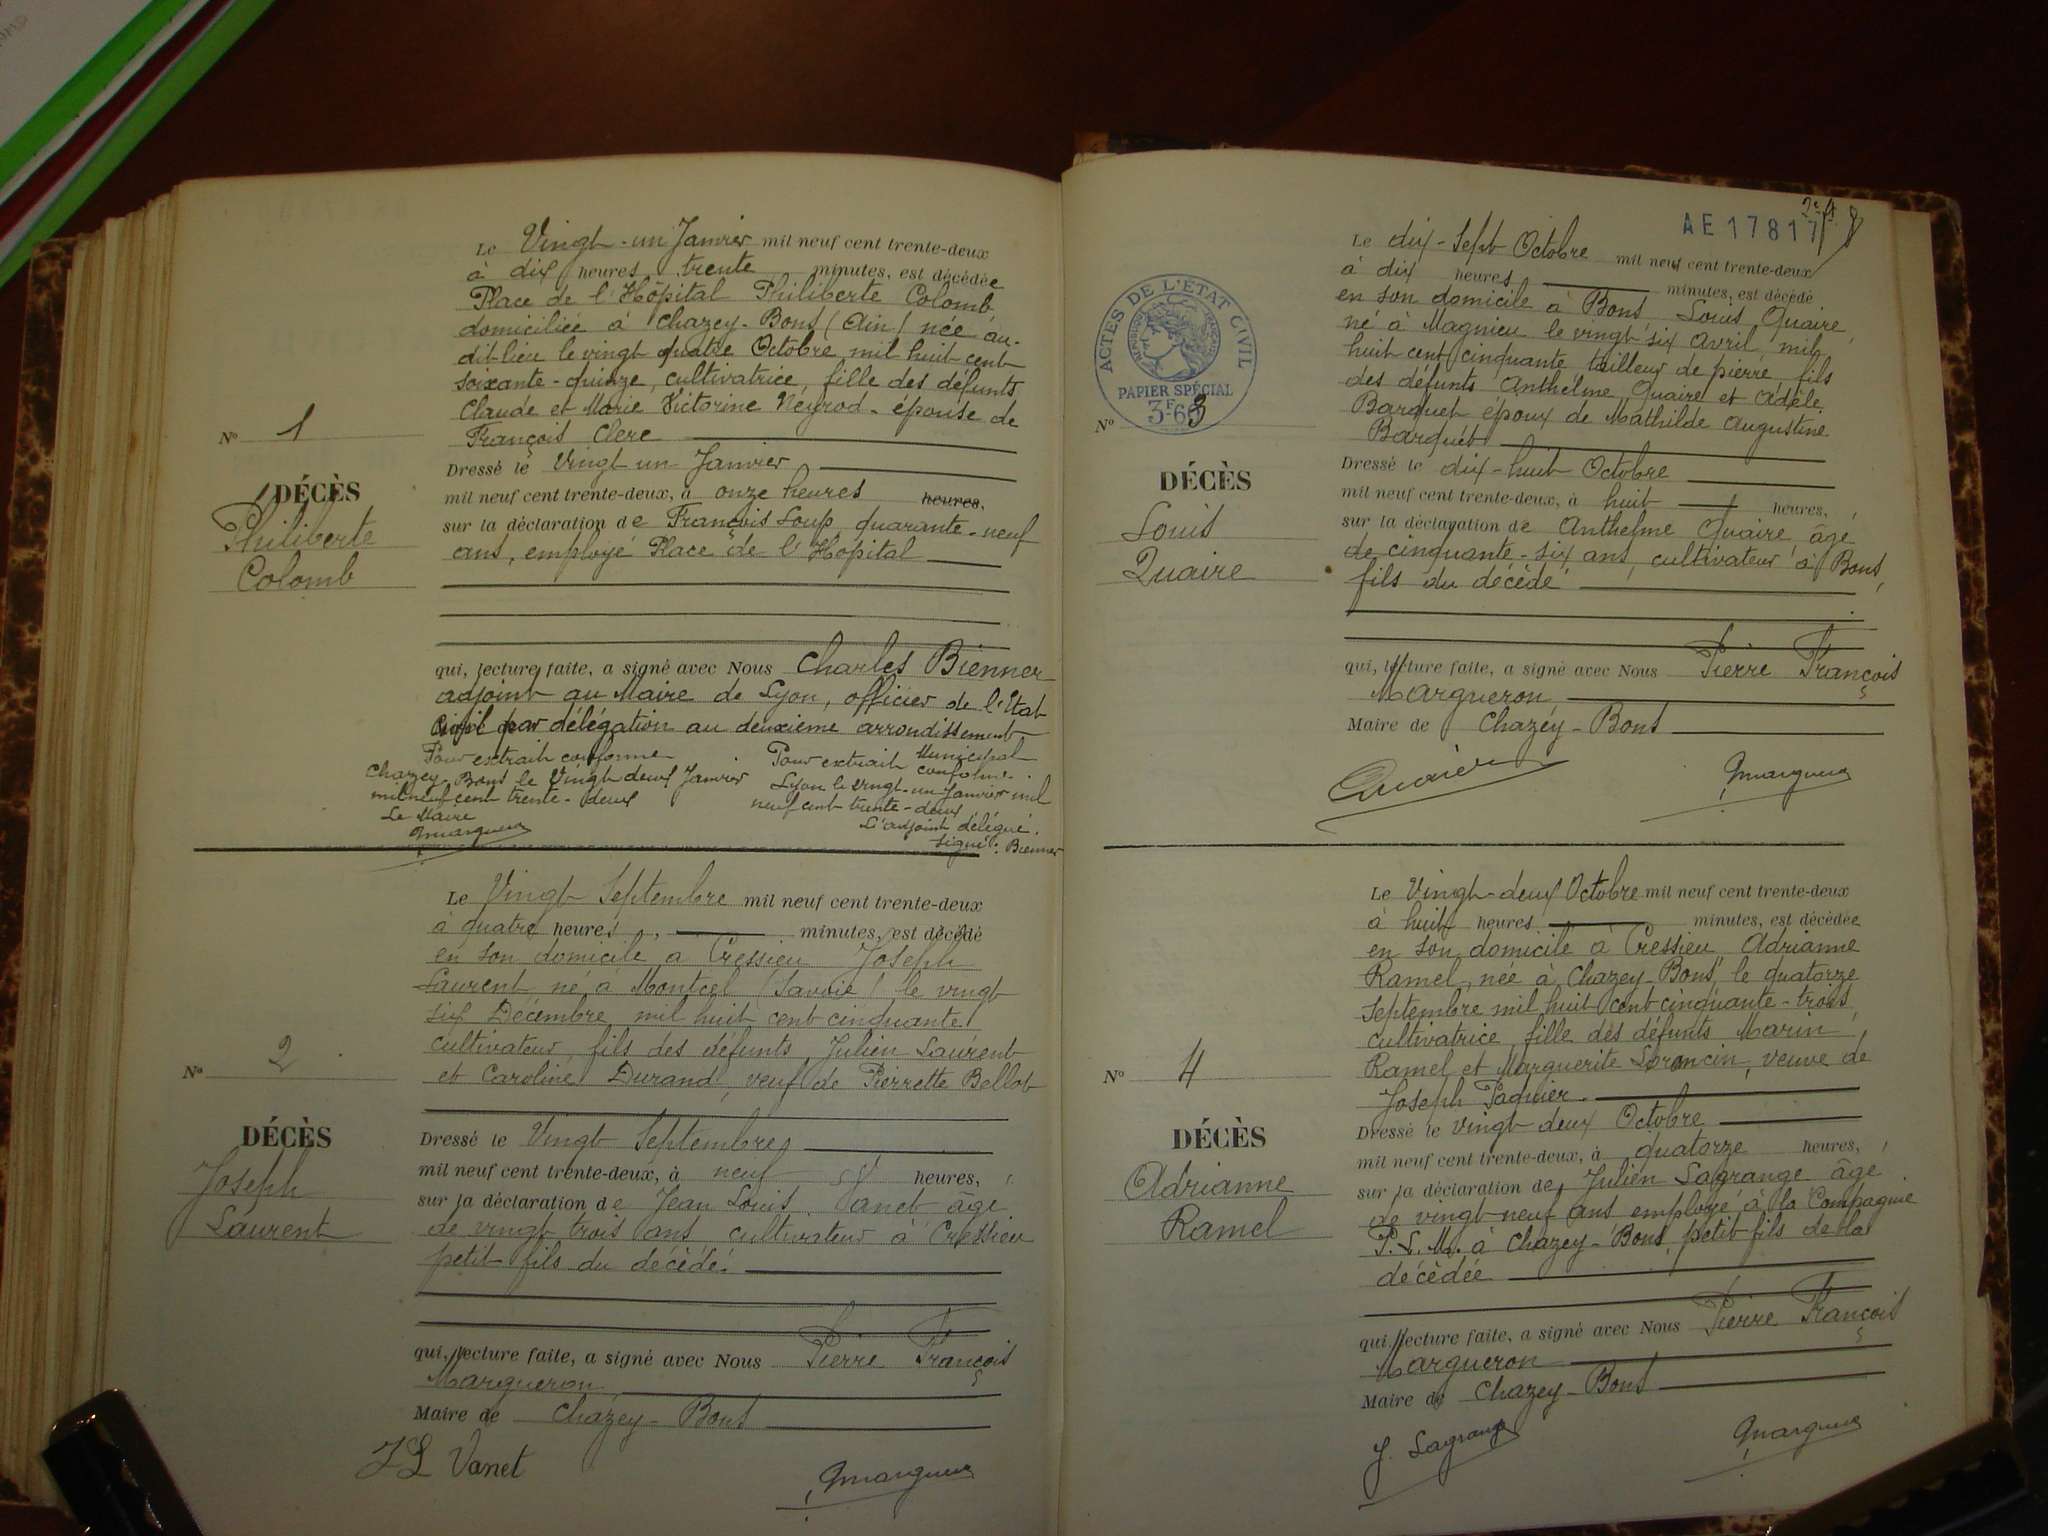 Le Vingt-un Janvier mil neuf cent trente-deux
à dix heures trente minutes, est décédée
Place de l'Hôpital Philiberte Colomb
domiciliée à Chazey-Bons (Ain) née au-
dit-lieu le vingt quatre Octobre mil huit cent
soixante-quinze, cultivatrice, fille des défunts
Claude et Marie Victorine Neyrod - épouse de
François Clerc
Nº 1
DÉCÈS
Philiberte
Colomb
Dressé le Vingt un Janvier
mil neuf cent trente-deux, à onze heures heures,
sur la déclaration de François Loup, quarante-neuf
ans, employé Place de l'Hopital
qui, lecture faite, a signé avec Nous Charles Bienner
adjoint au Maire de Lyon, officier de l'Etat
Civil par délégation au deuxième arrondissement
Municipal
Pour extrait conforme
Chazey-Bons le Vingt deux Janvier
mil neuf cent trente-deux
Le Maire
Pour extrait conforme.
Lyon le vingt-un Janvier mil
neuf cent trente-deux
L'adjoint délégué.
signé: Bienner
Le Vingt Septembre mil neuf cent trente-deux
à quatre heures, minutes, est décédé
en son domicile a Cressieu Joseph
Laurent né à Montcel (Savoie) le vingt
six Décembre mil huit cent cinquante
cultivateur, fils des défunts Julien Laurent
et Caroline Durand, veuf de Pierrette Bellot
Nº 2
DÉCÈS
Joseph
Laurent
Dressé le Vingt Septembre
mil neuf cent trente-deux, à neuf heures,
sur la déclaration de Jean Louis Vanet âgé
de vingt trois ans cultivateur à Cressieu
petit fils du décédé.
qui, lecture faite, a signé avec Nous Pierre François
Margueron
Maire de Chazey-Bons
J L Vanet
AE 17817
Le dix-sept Octobre mil neuf cent trente-deux
à dix heures minutes, est décédé
en son domicile à Bons Louis Quaire
né à Magnieu le vingt six avril mil
huit cent cinquante tailleur de pierre, fils
des défunts Anthelme Quaire et Adèle
Barquet époux de Mathilde Augustine
Barquet
ACTES DE L'ÉTAT CIVIL
RÉPUBLIQUE FRANÇAISE
PAPIER SPÉCIAL
3F60
Nº 3
DÉCÈS
Louis
Quaire
Dressé le dix-huit Octobre
mil neuf cent trente-deux, à huit heures,
sur la déclaration de Anthelme Quaire, âgé
de cinquante-six ans, cultivateur à Bons,
fils du décédé
qui, lecture faite, a signé avec Nous Pierre François
Margueron
Maire de Chazey-Bons
Le Vingt-deux Octobre mil neuf cent trente-deux
à huit heures minutes, est décédée
en son domicile à Cressieu, Adrianne
Ramel, née à Chazey-Bons, le quatorze
Septembre mil huit cent cinquante-trois,
cultivatrice, fille des défunts Marin
Ramel et Marguerite veuve de
Joseph
Nº 4
DÉCÈS
Adrianne
Ramel
Dressé le vingt deux Octobre
mil neuf cent trente-deux, à quatorze heures,
sur la déclaration de Julien Lagrange âgé
de vingt-neuf ans employé à la Compagnie
P.L.M. à Chazey-Bons, petit fils de la
décédée
qui, lecture faite, a signé avec Nous Pierre François
Margueron
Maire de Chazey-Bons
J. Lagrange